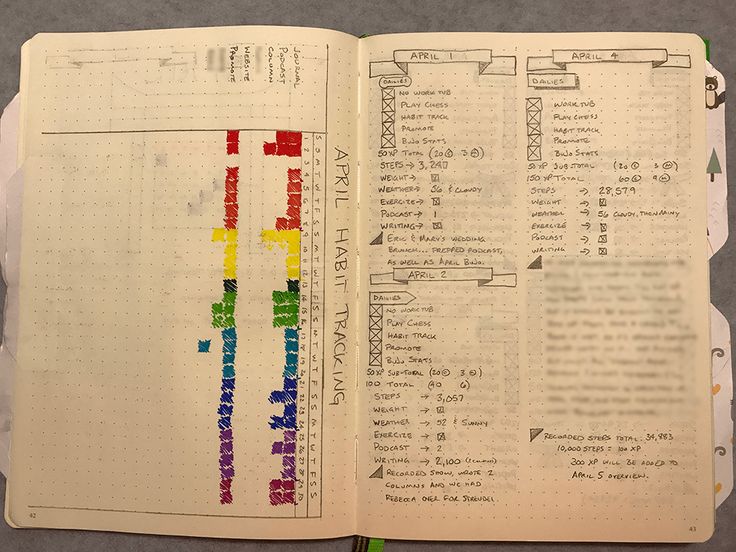 APRIL HABIT TRACKING
JOURNAL
PODCAST
COLUMN
WEBSITE
PROMOTE
S S M T W T F S S M T W T F S S M T W T F S S M T W T F S S
1 2 3 4 5 6 7 8 9 10 11 12 13 14 15 16 17 18 19 20 21 22 23 24 25 26 27 28 29 30
42
APRIL 1
DAILIES
NO WORK TUB
PLAY CHESS
HABIT TRACK
PROMOTE
BUJO STATS
50 XP TOTAL (20 C 3 M)
STEPS → 3,247
WEIGHT →
WEATHER → 56 & CLOUDY
EXERCISE →
PODCAST → 1
WRITING →
ERIC & MARY'S WEDDING
BRUNCH... PREPPED PODCAST,
AS WELL AS APRIL BUJO.
APRIL 2
DAILIES
NO WORK TUB
PLAY CHESS
HABIT TRACK
PROMOTE
BUJO STATS
50 XP SUB-TOTAL (20 C 3 M)
100 TOTAL (40 6)
STEPS → 3,057
WEIGHT →
WEATHER → 52 & SUNNY
EXERCISE →
PODCAST → 2
WRITING → 2,100
RECORDED SHOW, WROTE 2
COLUMNS AND WE HAD
REBECCA OVER FOR STREUDEL
APRIL 4
DAILIES
WORK TUB
PLAY CHESS
HABIT TRACK
PROMOTE
BUJO STATS
50 XP SUB-TOTAL (20 C 3 M)
150 XP TOTAL 60 C 9 M
STEPS → 28,579
WEIGHT →
WEATHER → 56 CLOUDY, THEN RAINY
EXERCISE →
PODCAST →
WRITING →
RECORDED STEPS TOTAL: 34,883
10,000 STEPS = 100 XP
300 XP WILL BE ADDED TO
APRIL 5 OVERVIEW.
43